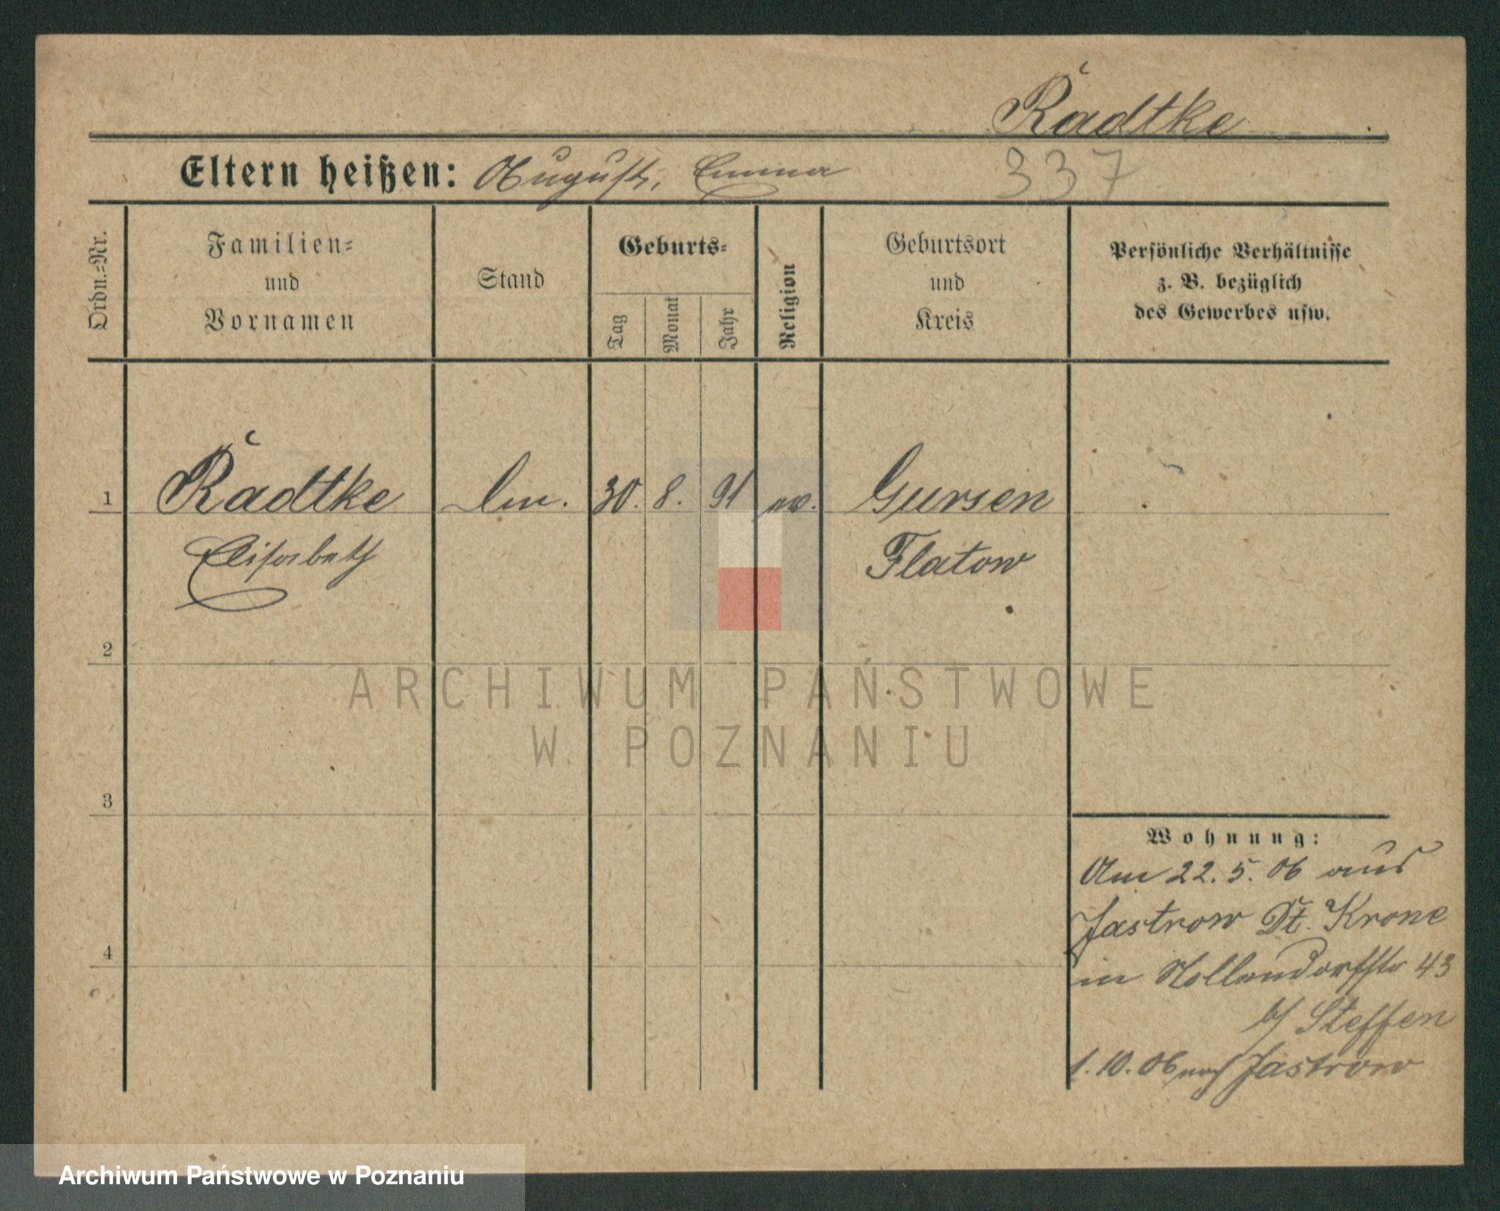 Radtke
Eltern heißen: August, Emma
337
Ordn.=Nr.
Familien=
und
Vornamen
Stand
Geburts=
Tag
Monat
Jahr
Religion
Geburtsort
und
Kreis
Persönliche Verhältnisse
z. B. bezüglich
des Gewerbes usw.
1 Radtke 30. 8. 91 ev. Gursen
Elisabeth Flatow
2
ARCHIWUM PAŃSTWOWE
W POZNANIU
3
Wohnung:
Am 22. 5. 06 aus
Jastrow Dt. Krone
4
in Hollendorfstr 43
b/ Steffen
1. 10. 06 nach Jastrow
Archiwum Państwowe w Poznaniu